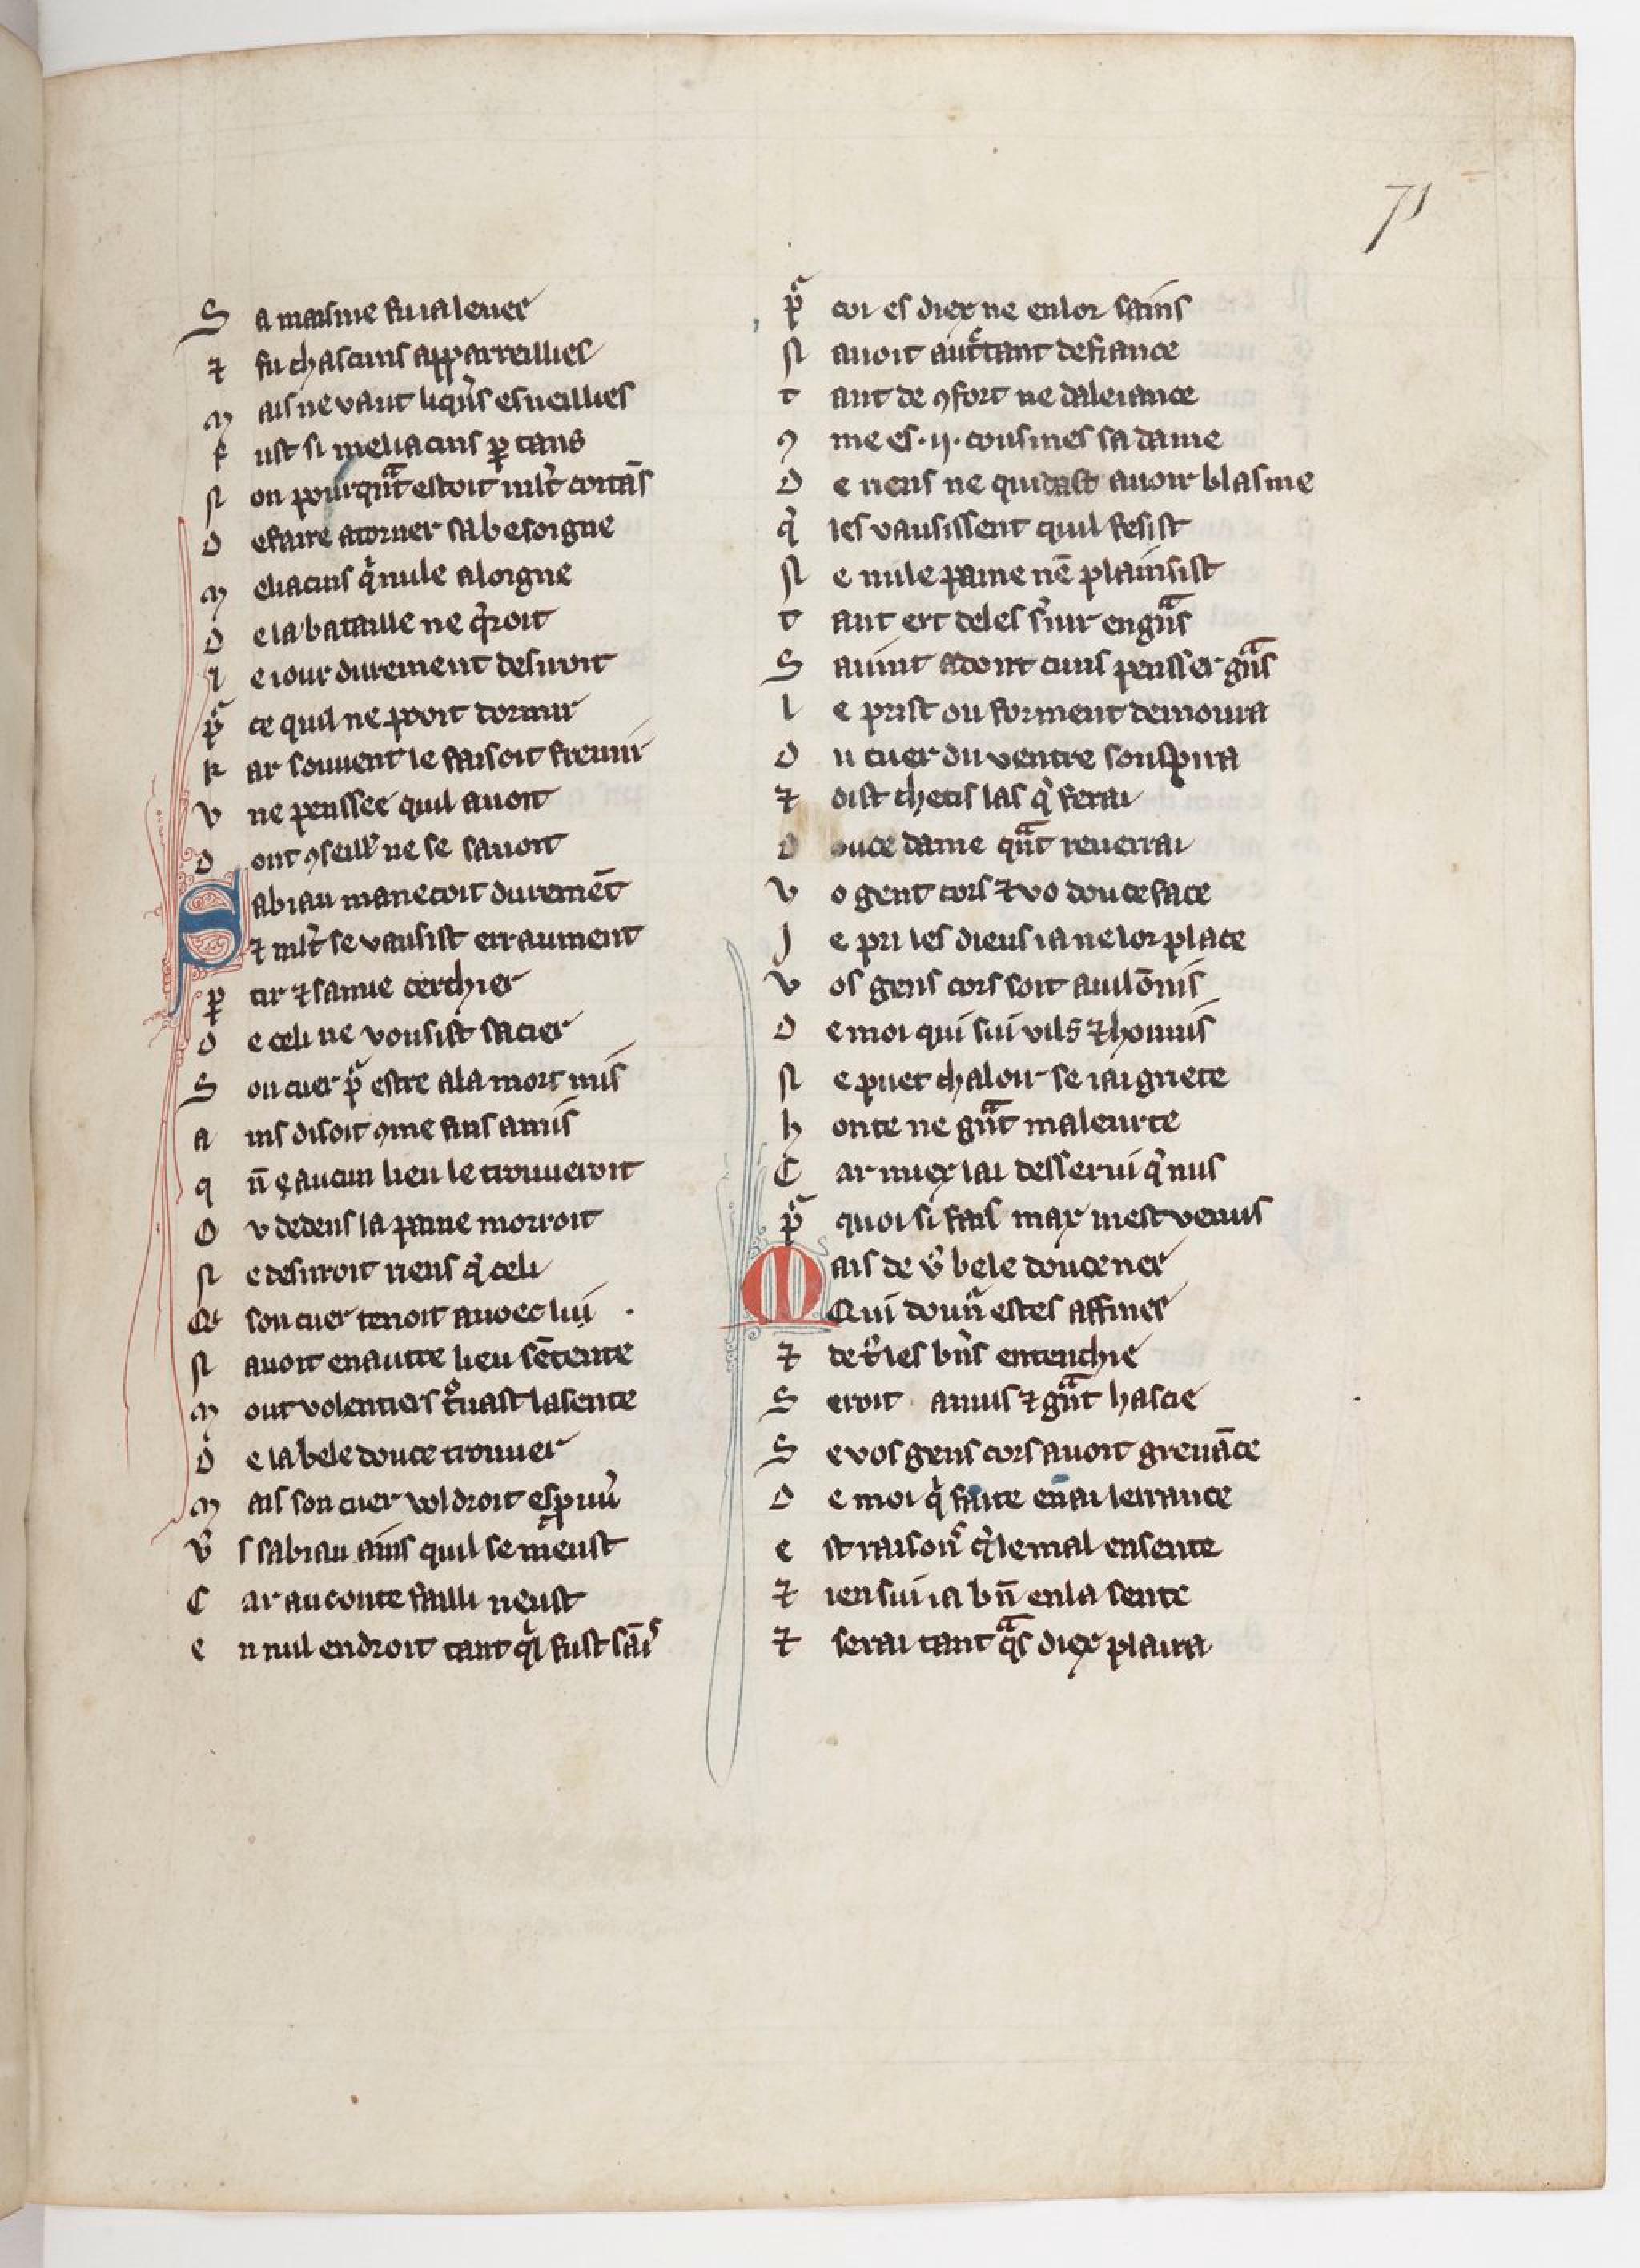 71
S a maisnie fu ia leuer
⁊ fu chascuns apparreillies
m ais ne vaut liqͥns esueillies
f ust si meliacins ꝑ tans
N on pourqᷓnt estoit mlt̉ contās
D e faire atorner sa besoigne
m eliacins qͥ nule aloigne
D e la bataille ne qͥroit
L e iour durement desiroit
pᷓ ce quil ne pooit dormir
k ar souuent le faisoit fremir
v ne penssee quil auoit
D ont ꝯseillꝰ ne se sauoit
S abiau manecoit duremēt
⁊ mlt̉ se vausist erraument
ꝑ tir ⁊ sa mie cerchier
D e celi ne vousist sacier
S on cuer pᷓ estre a la mort mis
a ins disoit ꝯme fins amis
q n̄ ē aucun lieu le trouueroit
O v dedens la paine morroit
N e desirroit riens qͥ celi
Qͥ son cuer tenoit auoec lui .
N auoit en autre lieu sētente
m out volentiers tͦuast la sente
D e la bele douce trouuer
m ais son cuer voldroit esprouū
v̉ s sabiau ains quil se mēust
C ar au conte failli neust
e n nul endroit tant qͥl fust sāis
pᷓ coi es diex ne en lor sains
N auoit autᷓtant de fiance
t ant de ꝯfort ne daleiance
ꝯ me es .ij. cousines sa dame
D e riens ne quidast auoir blasme
qͥ les vausissent quil fesist
N e nule paine nē plainsist
t ant ert deles sͥuir en gᷓns
S auint adont cuns pensser gᷓns
l e prist ou forment demoura
D u cuer du ventre souspira
⁊ dist chetis las qͥ ferai
D ouce dame qᷓnt reuerrai
v o gent cors ⁊ vo douce face
J e pri les dieus ia ne lor place
v os gens cors soit auilōnis
D e moi qui sui vils ⁊ honnis
N e puet chaloir se iai griete
h onte ne gᷓnt maleurte
C ar miex lai desserui qͥ nus
pᷓ quoi si fais max mest venus
M ais de v̉ bele douce nee
Qui dounᷓ estes affinee
⁊ de tͦs les bn̄s entechie
S eroit anuis ⁊ gᷓnt hascie
S e vos gens cors auoit greuāce
D e moi qͥ faite en ai lerrance
e st raisons qͥ le mal en sente
⁊ ien sui ia bn̄ en la sente
⁊ serai tant qᷓs diex plaira